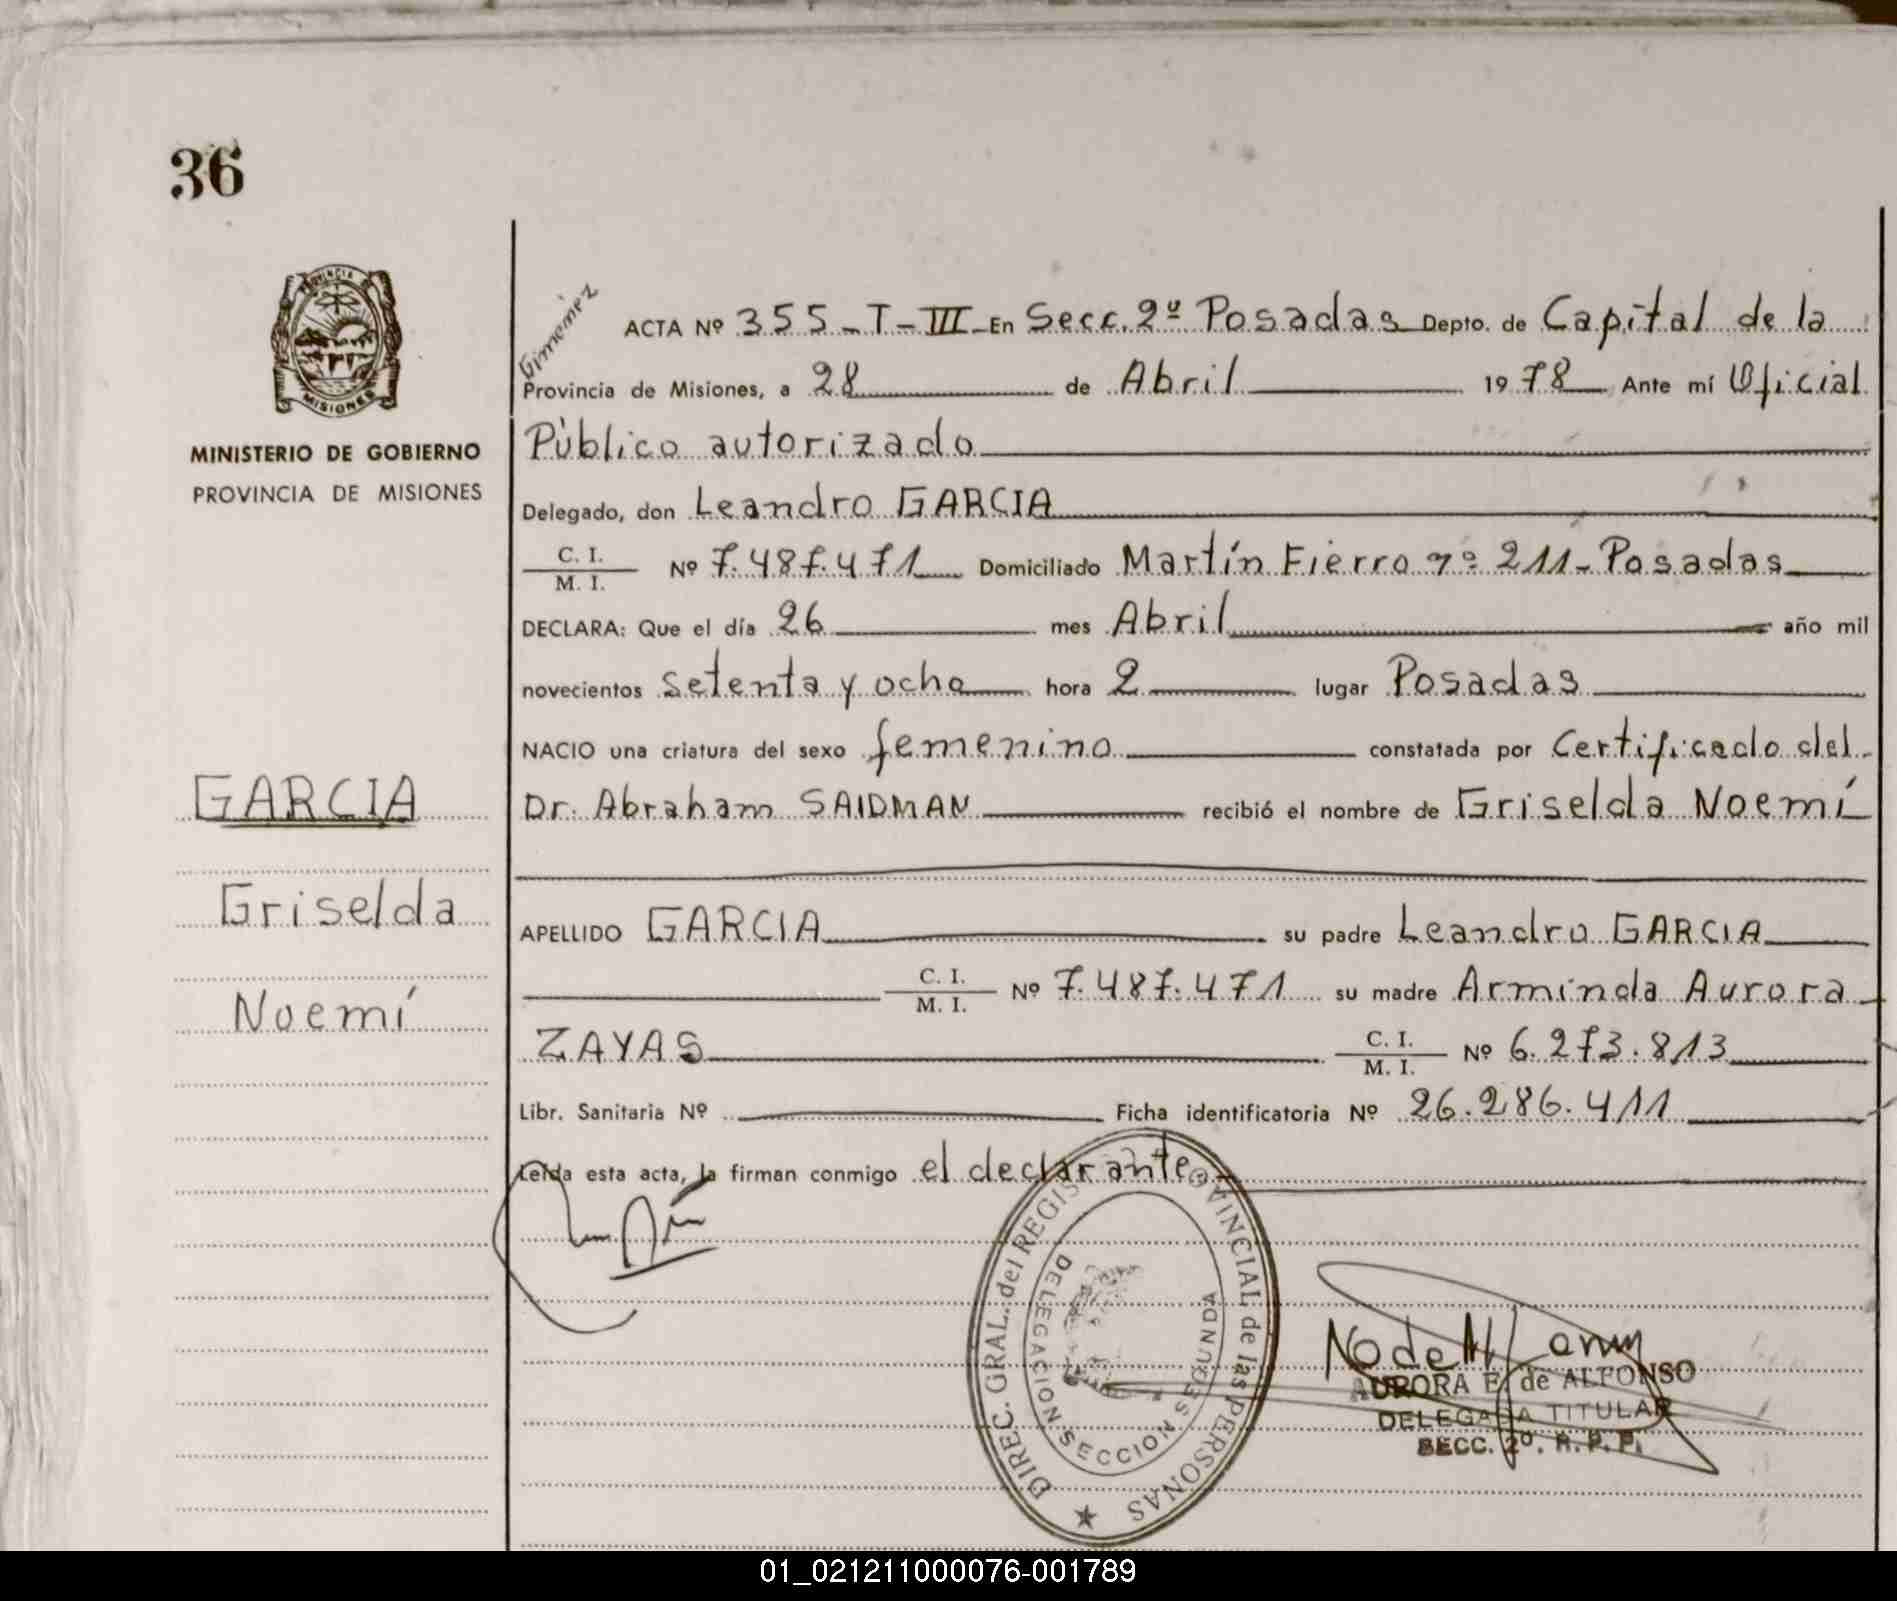 36
PROVINCIA
MISIONES
MINISTERIO DE GOBIERNO
PROVINCIA DE MISIONES
GARCIA
Griselda
Noemí
Gimenez
ACTA Nº 355-T-III-En Secc. 2º Posadas Depto. de Capital de la
Provincia de Misiones, a 28 de Abril 1978 Ante mí Oficial
Público autorizado
Delegado, don Leandro GARCIA
C. I.
M. I. Nº 7.487.471 Domiciliado Martín Fierro nº 211-Posadas
DECLARA: Que el día 26 mes Abril año mil
novecientos setenta y ocho hora 2 lugar Posadas
NACIO una criatura del sexo femenino constatada por Certificado del
Dr. Abraham SAIDMAN recibió el nombre de Griselda Noemí
APELLIDO GARCIA su padre Leandro GARCIA
C. I.
M. I. Nº 7.487.471 su madre Arminda Aurora
ZAYAS C. I.
M. I. Nº 6.273.813
Libr. Sanitaria Nº Ficha identificatoria Nº 26.286.411
Leída esta acta, la firman conmigo el declarante
DIREC. GRAL. del REGIS OVINCIAL de las PERSONAS
DELEGACION SECCION SEGUNDA
AURORA E. de ALFONSO
DELEGADA TITULAR
SECC. 2º. R. P. P.
01_021211000076-001789